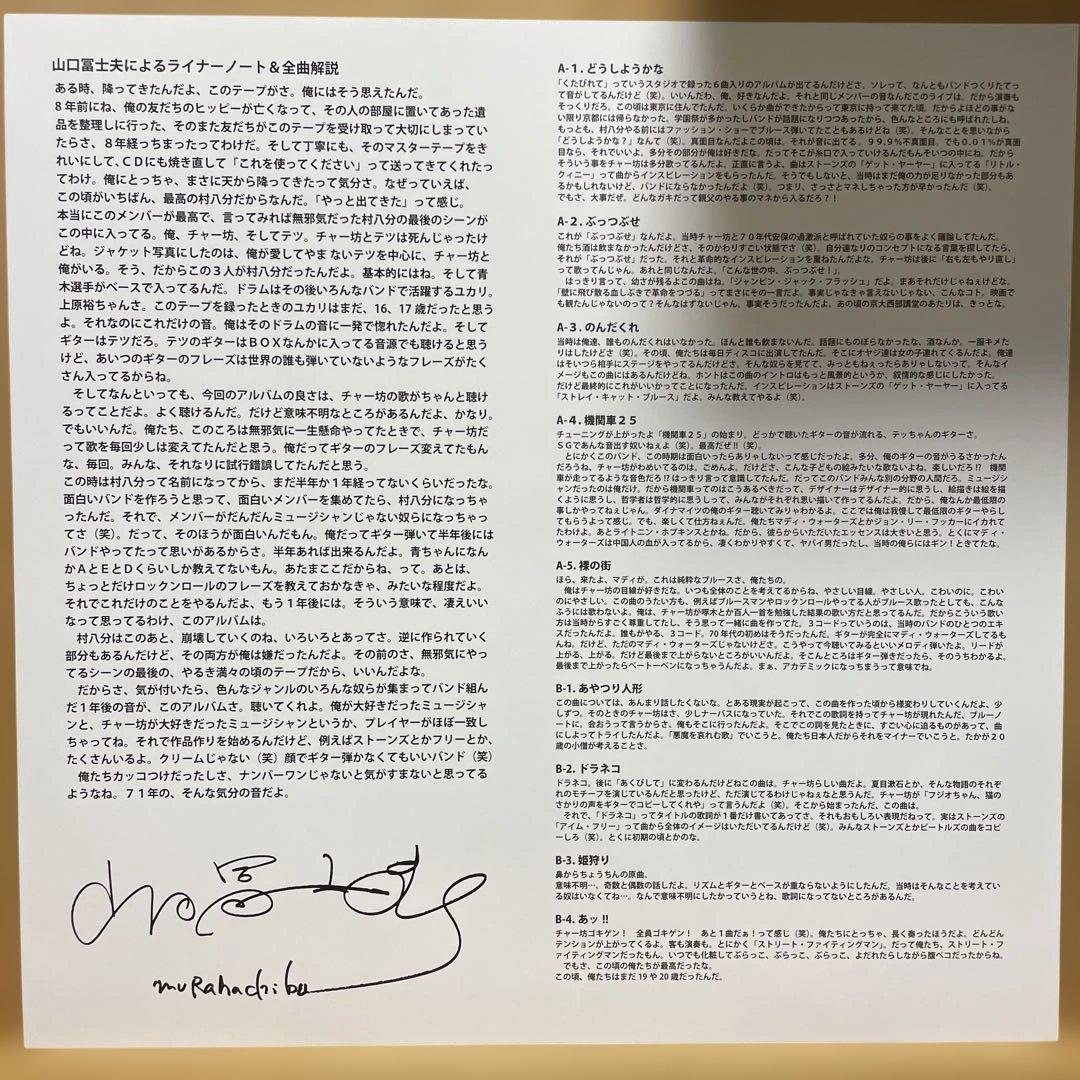 山口冨士夫によるライナーノート＆全曲解説
ある時、降ってきたんだよ、このテープがさ。俺にはそう思えたんだ。
8年前にね、俺の友だちのヒッピーが亡くなって、その人の部屋に置いてあった遺
品を整理しに行った、そのまた友だちがこのテープを受け取って大切にしまってい
たらさ、８年経っちまったってわけだ。そして丁寧にも、そのマスターテープをき
れいにして、ＣＤにも焼き直して「これを使ってください」って送ってきてくれたっ
てわけ。俺にとっちゃ、まさに天から降ってきたって気分さ。なぜっていえば、
この頃がいちばん、最高の村八分だからなんだ。「やっと出てきた」って感じ。
本当にこのメンバーが最高で、言ってみれば無邪気だった村八分の最後のシーンが
この中に入ってる。俺、チャー坊、そしてテツ。チャー坊とテツは死んじゃったけ
どね。ジャケット写真にしたのは、俺が愛してやま ないテツを中心に、チャー坊と
俺がいる。そう、だからこの３人が村八分だったんだよ。基本的にはね。そして青
木選手がベースで入ってるんだ。ドラムはその後いろんなバンドで活躍するユカリ。
上原裕ちゃんさ。このテープを録ったときのユカリはまだ、16、17歳だったと思う
よ。それなのにこれだけの音。俺はそのドラムの音に一発で惚れたんだよ。そして
ギターはテツだろ。テツのギターはＢＯＸなんかに入ってる音源でも聴けると思う
けど、あいつのギターのフレーズは世界の誰も弾いていないようなフレーズがたく
さん入ってるからね。
　そしてなんといっても、今回のアルバムの良さは、チャー坊の歌がちゃんと聴け
るってことだよ。よく聴けるんだ。だけど意味不明なところがあるんだよ、かなり。
でもいいんだ。俺たち、このころは無邪気に一生懸命やってたときで、チャー坊だ
って歌を毎回少しは変えてたんだと思う。俺だってギターのフレーズ変えてたもん
な、毎回。みんな、それなりに試行錯誤してたんだと思う。
この時は村八分って名前になってから、まだ半年か１年経ってないくらいだったな。
面白いバンドを作ろうと思って、面白いメンバーを集めてたら、村八分になっちゃ
ったんだ。それで、メンバーがだんだんミュージシャンじゃない奴らになっちゃっ
てさ（笑）。だって、そのほうが面白いんだもん。俺だってギター弾いて半年後には
バンドやってたって思いがあるからさ。半年あれば出来るんだよ。青ちゃんになん
かＡとＥとＤくらいしか教えてないもん。あたまここだからね、って。あとは、
ちょっとだけロックンロールのフレーズを教えておかなきゃ、みたいな程度だよ。
それでこれだけのことをやるんだよ、もう１年後には。そういう意味で、凄えいい
なって思ってるわけ、このアルバムは。
　村八分はこのあと、崩壊していくのね、いろいろとあってさ。逆に作られていく
部分もあるんだけど、その両方が俺は嫌だったんだよ。その前のさ、無邪気にやっ
てるシーンの最後の、やるき満々の頃のテープだから、いいんだよな。
　だからさ、気が付いたら、色んなジャンルのいろんな奴らが集まってバンド組ん
だ１年後の音が、このアルバムさ。聴いてくれよ。俺が大好きだったミュージシャ
ンと、チャー坊が大好きだったミュージシャンというか、プレイヤーがほぼ一致し
ちゃってね。それで作品作りを始めるんだけど、例えばストーンズとかフリーとか、
たくさんいるよ。クリームじゃない（笑）顔でギター弾かなくてもいいバンド（笑）
　俺たちカッコつけだったしさ、ナンバーワンじゃないと気がすまないと思ってる
ようなね。７１年の、そんな気分の音だよ。
山口冨士夫
muRahachibu
A-1. どうしようかな
「くたびれて」っていうスタジオで録った６曲入りのアルバムが出てるんだけどさ。ソレって、なんともバンドつくりたてっ
て音がしてるんだけど（笑）。いいんだわ、俺、好きなんだよ。それと同じメンバーの音なんだこのライブは。だから演奏も
そっくりだろ。この頃は東京に住んでたんだ。いくらか曲ができたからって東京に持って来てた頃。だからよほどの事がな
い限り京都には帰らなかった。学園祭が多かったしバンドが話題になりつつあったから、色んなところにも呼ばれたしね。
もっとも、村八分やる前にはファッション・ショーでブルース弾いてたこともあるけどね（笑）。そんなことを思いながら
「どうしようかな？」なんて（笑）。真面目なんだよこの頃は。それが音に出てる。９９.９％不真面目。でも０.０１％が真面
目なら、それでいいよ。多分その部分が俺は好きだな。だってそこが糸口で入っていけるんだもんそいつの中にね。だから
そういう事をチャー坊は多分歌ってるんだよ。正直に言うよ、曲はストーンズの「ゲット・ヤーヤー」に入ってる「リトル・
クィニー」って曲からインスピレーションをもらったんだ。そうでもしないと、当時はまだ俺の力が足りなかった部分もあ
るかもしれないけど、バンドにならなかったんだよ（笑）。つまり、さっさとマネしちゃった方が早かったんだ（笑）。
でもさ、大事だぜ。どんなガキだって親父のやる事のマネから入るだろ？！
A-2. ぶっつぶせ
これが「ぶっつぶせ」なんだよ。当時チャー坊と７０年代安保の過激派と呼ばれていた奴らの事をよく議論してたんだ。
俺たち酒は飲まなかったんだけどさ、そのかわりすごい状態でさ（笑）。自分達なりのコンセプトになる言葉を探してたら、
それが「ぶっつぶせ」だった。それと革命的なインスピレーションを重ねたんだよな。チャー坊は後に「右も左もやり直し」
って歌ってんじゃん。あれと同じなんだよ。「こんな世の中、ぶっつぶせ！」。
　はっきり言って、幼さが残るよこの曲はね。「ジャンピン・ジャック・フラッシュ」だよ。まあそれだけじゃねぇけどな。
「壁に飛び散る血しぶきで革命をつづる」ってまさにその一言だよ。事実じゃなきゃ言えないじゃない、こんなコト。映画で
も観たんじゃないのって？そんなはずないじゃん。事実そうだったんだよ。あの頃の京大西部講堂のあたりは、きっとな。
A-3. のんだくれ
当時は俺達、誰ものんだくれはいなかった。ほんと誰も飲まないんだ。話題にものぼらなかったな、酒なんか。一服キメた
りはしたけどさ（笑）。その頃、俺たちは毎日ディスコに出演してたんだ。そこにオヤジ達は女の子連れてくるんだよ。俺達
はそいつら相手にステージをやってるんだけどさ。そんな奴らを見てて、みっともねぇったらありゃしないって。そんなイ
メージもこの曲にはあるんだけどね。ホントはこの曲のイントロはもっと風景的というか、叙情的な感じにしたかった。
だけど最終的にこれがいいかってことになったんだ。インスピレーションはストーンズの「ゲット・ヤーヤー」に入ってる
「ストレイ・キャット・ブルース」だよ。みんな教えてやるよ（笑）。
A-4. 機関車２５
チューニングが上がったよ「機関車２５」の始まり。どっかで聴いたギターの音が流れる、テッちゃんのギターさ。
ＳＧであんな音出す奴いねぇよ（笑）。最高だぜ!!（笑）。
　とにかくこのバンド、この時期は面白いったらありゃしないって感じだったよ。多分、俺のギターの音がうるさかったん
だろうね、チャー坊がわめいてるのは。ごめんよ。だけどさ、こんな子どもの絵みたいな歌ないよね。楽しいだろ!?　機関
車が走ってるような音色だろ!?はっきり言って意識してたんだ。だってこのバンドみんな別の分野の人間だろ。ミュージシ
ャンだったのは俺だけ。だから機関車ってのはこうあるべきだって、デザイナーはデザイナー的に思うし、絵描きは絵を描
くように思うし、哲学者は哲学的に思うしって、みんながそれぞれ思い描いて作ってるんだよ。だから、俺なんか最低限の
事しかやってねぇじゃん。ダイナマイツの俺のギター聴いてみりゃわかるよ。ここでは俺は我慢して最低限のギターやらし
てもらうよって感じ。でも、楽しくて仕方ねぇんだ。俺たちマディ・ウォーターズとかジョン・リー・フッカーにイカれて
たわけよ。あとライトニン・ホプキンスとかね。だから、彼らからいただいたエッセンスは大きいと思う。とくにマディ・
ウォーターズは中国人の血が入ってるから、凄くわかりやすくて、ヤバイ男だったし、当時の俺らにはギン！ときてたな。
A-5. 裸の街
ほら、来たよ、マディが。これは純粋なブルースさ、俺たちの。
　俺はチャー坊の目線が好きだな。いつも全体のことを考えてるからね、やさしい目線。やさしい人。こわいのに。こわい
のにやさしい。この曲のうたい方も、例えばブルースマンやロックンロールやってる人がブルース歌ったとしても、こんな
ふうには歌わないよ。俺は、チャー坊が啄木とか百人一首を勉強した結果の歌い方だと思ってるんだ。だからこういう歌い
方は当時からすごく尊重してたし、そう思って一緒に曲を作ってた。３コードっていうのは、当時のバンドのひとつのエキ
スだったんだよ。誰もがやる、３コード。70年代の初めはそうだったんだ。ギターが完全にマディ・ウォーターズしてるも
んね。だけど、ただのマディ・ウォーターズじゃないけどさ。こうやって今聴いてみるといいメロディ弾いたよ。リードが
上がる、上がる。だけど最後まで上がらないところがいいんだよ。そこんところはギター弾きだったら、そのうちわかるよ。
最後まで上がったらベートーベンになっちゃうんだよ。まぁ、アカデミックになっちまうって意味でね。
B-1. あやつり人形
この曲については、あんまり話したくないな。とある現実が起こって、この曲を作った頃から様変わりしていくんだよ、少
しずつ。そのときのチャー坊はさ、少しナーバスになっていた。それでこの歌詞を持ってチャー坊が現れたんだ、ブルーノ
ートに。会おうって言うからさ、俺もそこに行ったんだよ。そこでこの詞を見たときに、すごい心に迫るものがあって、曲
によってトライしたんだよ。「悪魔を哀れむ歌」でいこうと。俺たち日本人だからそれをマイナーでいこうと。たかが２０
歳の小僧が考えることさ。
B-2. ドラネコ
ドラネコ。後に「あくびして」に変わるんだけどねこの曲は。チャー坊らしい曲だよ。夏目漱石とか、そんな物語のそれぞ
れのモチーフを演じているんだと思ったけど、ただ演じてるわけじゃねぇなと思うんだ。チャー坊が「フジオちゃん、猫の
さかりの声をギターでコピーしてくれや」って言うんだよ（笑）。そこから始まったんだ、この曲は。
　それで、「ドラネコ」ってタイトルの歌詞が１番だけ書いてあってさ。それもおもしろい表現だねって。実はストーンズの
「アイム・フリー」って曲から全体のイメージはいただいてるんだけど（笑）。みんなストーンズとかビートルズの曲をコピ
ーしろ（笑）。とくに初期の頃とかのな。
B-3. 姫狩り
鼻からちょうちんの原曲。
意味不明…。奇数と偶数の話しだよ。リズムとギターとベースが重ならないようにしたんだ。当時はそんなことを考えてい
る奴はいなくてね…。なんで意味不明にしたかっていうとね、歌詞になってないところがあるんだ。
B-4. あッ !!
チャー坊ゴキゲン！　全員ゴキゲン！　あと１曲だぁ！って感じ（笑）。俺たちにとっちゃ、長く奏ったほうだよ。どんどん
テンションが上がってくるよ。客も演奏も。とにかく「ストリート・ファイティングマン」。だって俺たち、ストリート・フ
ァイティングマンだったもん。いつでも化粧してぶらっこ、ぶらっこ、ぶらっこ、よだれたらしながら腹ペコだったからね。
　でもさ、この頃の俺たちが最高だったな。
この頃、俺たちはまだ19や20歳だったんだ。